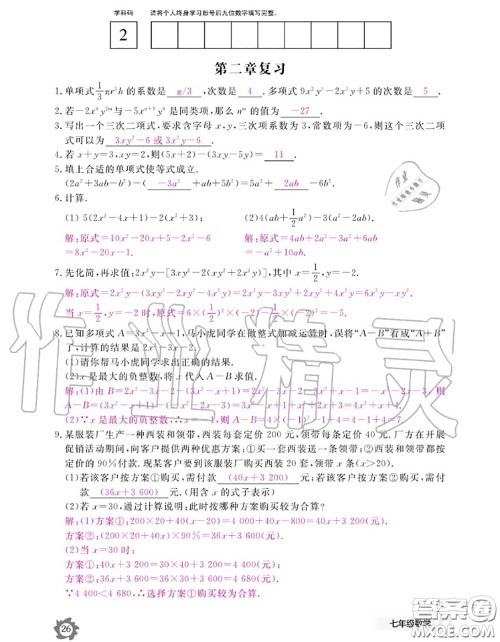 学科码 请将个人终身学习账号后九位数字填写完整。
2
第二章复习
1.单项式1/3πr²h的系数是 π/3 ,次数是 4 .多项式9x²y³-2x²y+5的次数是 5 .
2.若-2x³y²ᵐ与-5xⁿ⁺⁵y³是同类项,那么nᵐ的值为 -27 .
3.写出一个三次二项式,要求含字母x,y,三次项系数为3,常数项为-6,则这个三次二项
式可以为 3xy²-6或3x²y-6 .
4.若x+y=3,xy=2,则(5x+2)-(3xy-5y)= 11 .
5.填上合适的单项式使等式成立.
(2a²+3ab-b²)-( -3a² +ab+5b²)=5a²+ 2ab -6b².
6.计算.
(1) 5(2x²-4x+1)-2(x²+3); (2)4(ab+1/2a²)-3(2a²+ab).
解:原式=10x²-20x+5-2x²-6 解:原式=4ab+2a²-3a²-6ab
=8x²-20x-1. 
7.先化简,再求值:2x²y-[3xy²-2(xy²+2x²y)],其中x=1/2,y=-2.
解:原式=2x²y-(3xy²-2xy²-4x²y)=2x²y-3xy²+2xy²+4x²y=6x²y-xy².
当x=1/2,y=-2时,
8.已知多项式A=3x²-x+1,马小虎同学在做整式加减运算时,误将“A-B”看成“A+B”
了,计算的结果是2x²-3x-2.
(1)请你帮马小虎同学求出正确的结果.
(2)x是最大的负整数,将x代入A-B求值.
9.某服装厂生产一种西装和领带,西装每套定价200元,领带每条定价40元.厂方在开展
促销活动期间,向客户提供两种优惠方案:①买一套西装送一条领带;②西装和领带都
按定价的90%付款.现某客户要到该服装厂购买西装20套,领带x条(x>20).
(1)若该客户按方案①购买,需付款 (40x+3 200) 元;若该客户按方案②购买,需付
款 (36x+3 600) 元.(用含x的式子表示)
(2)若x=30,通过计算说明:此时按哪种方案购买较为合算?
解:(1)方案①:200×20+40(x-20)=4 000+40x-800=40x+3 200(元).
方案②:(200×20+40x)×90%=36x+3 600(元).
(2)当x=30时:
方案①:40x+3 200=40×30+3 200=4 400(元).
方案②:36x+3 600=36×30+3 600=4 680(元).
∵4 400<4 680,∴按方案①购买较为合算.
26
七年级数学
作业精灵